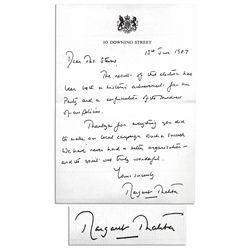 10 DOWNING STREET
13th June 1987
Dear Mr.
The result of the election has
been both a historic achievement for our
Party and a confirmation of the soundness
of our policies.
Thank you for everything you did
to make our local campaign such a success.
We have never had a better organisation -
and its spirit was truly wonderful.
Yours sincerely
Margaret Thatcher
Margaret Thatcher